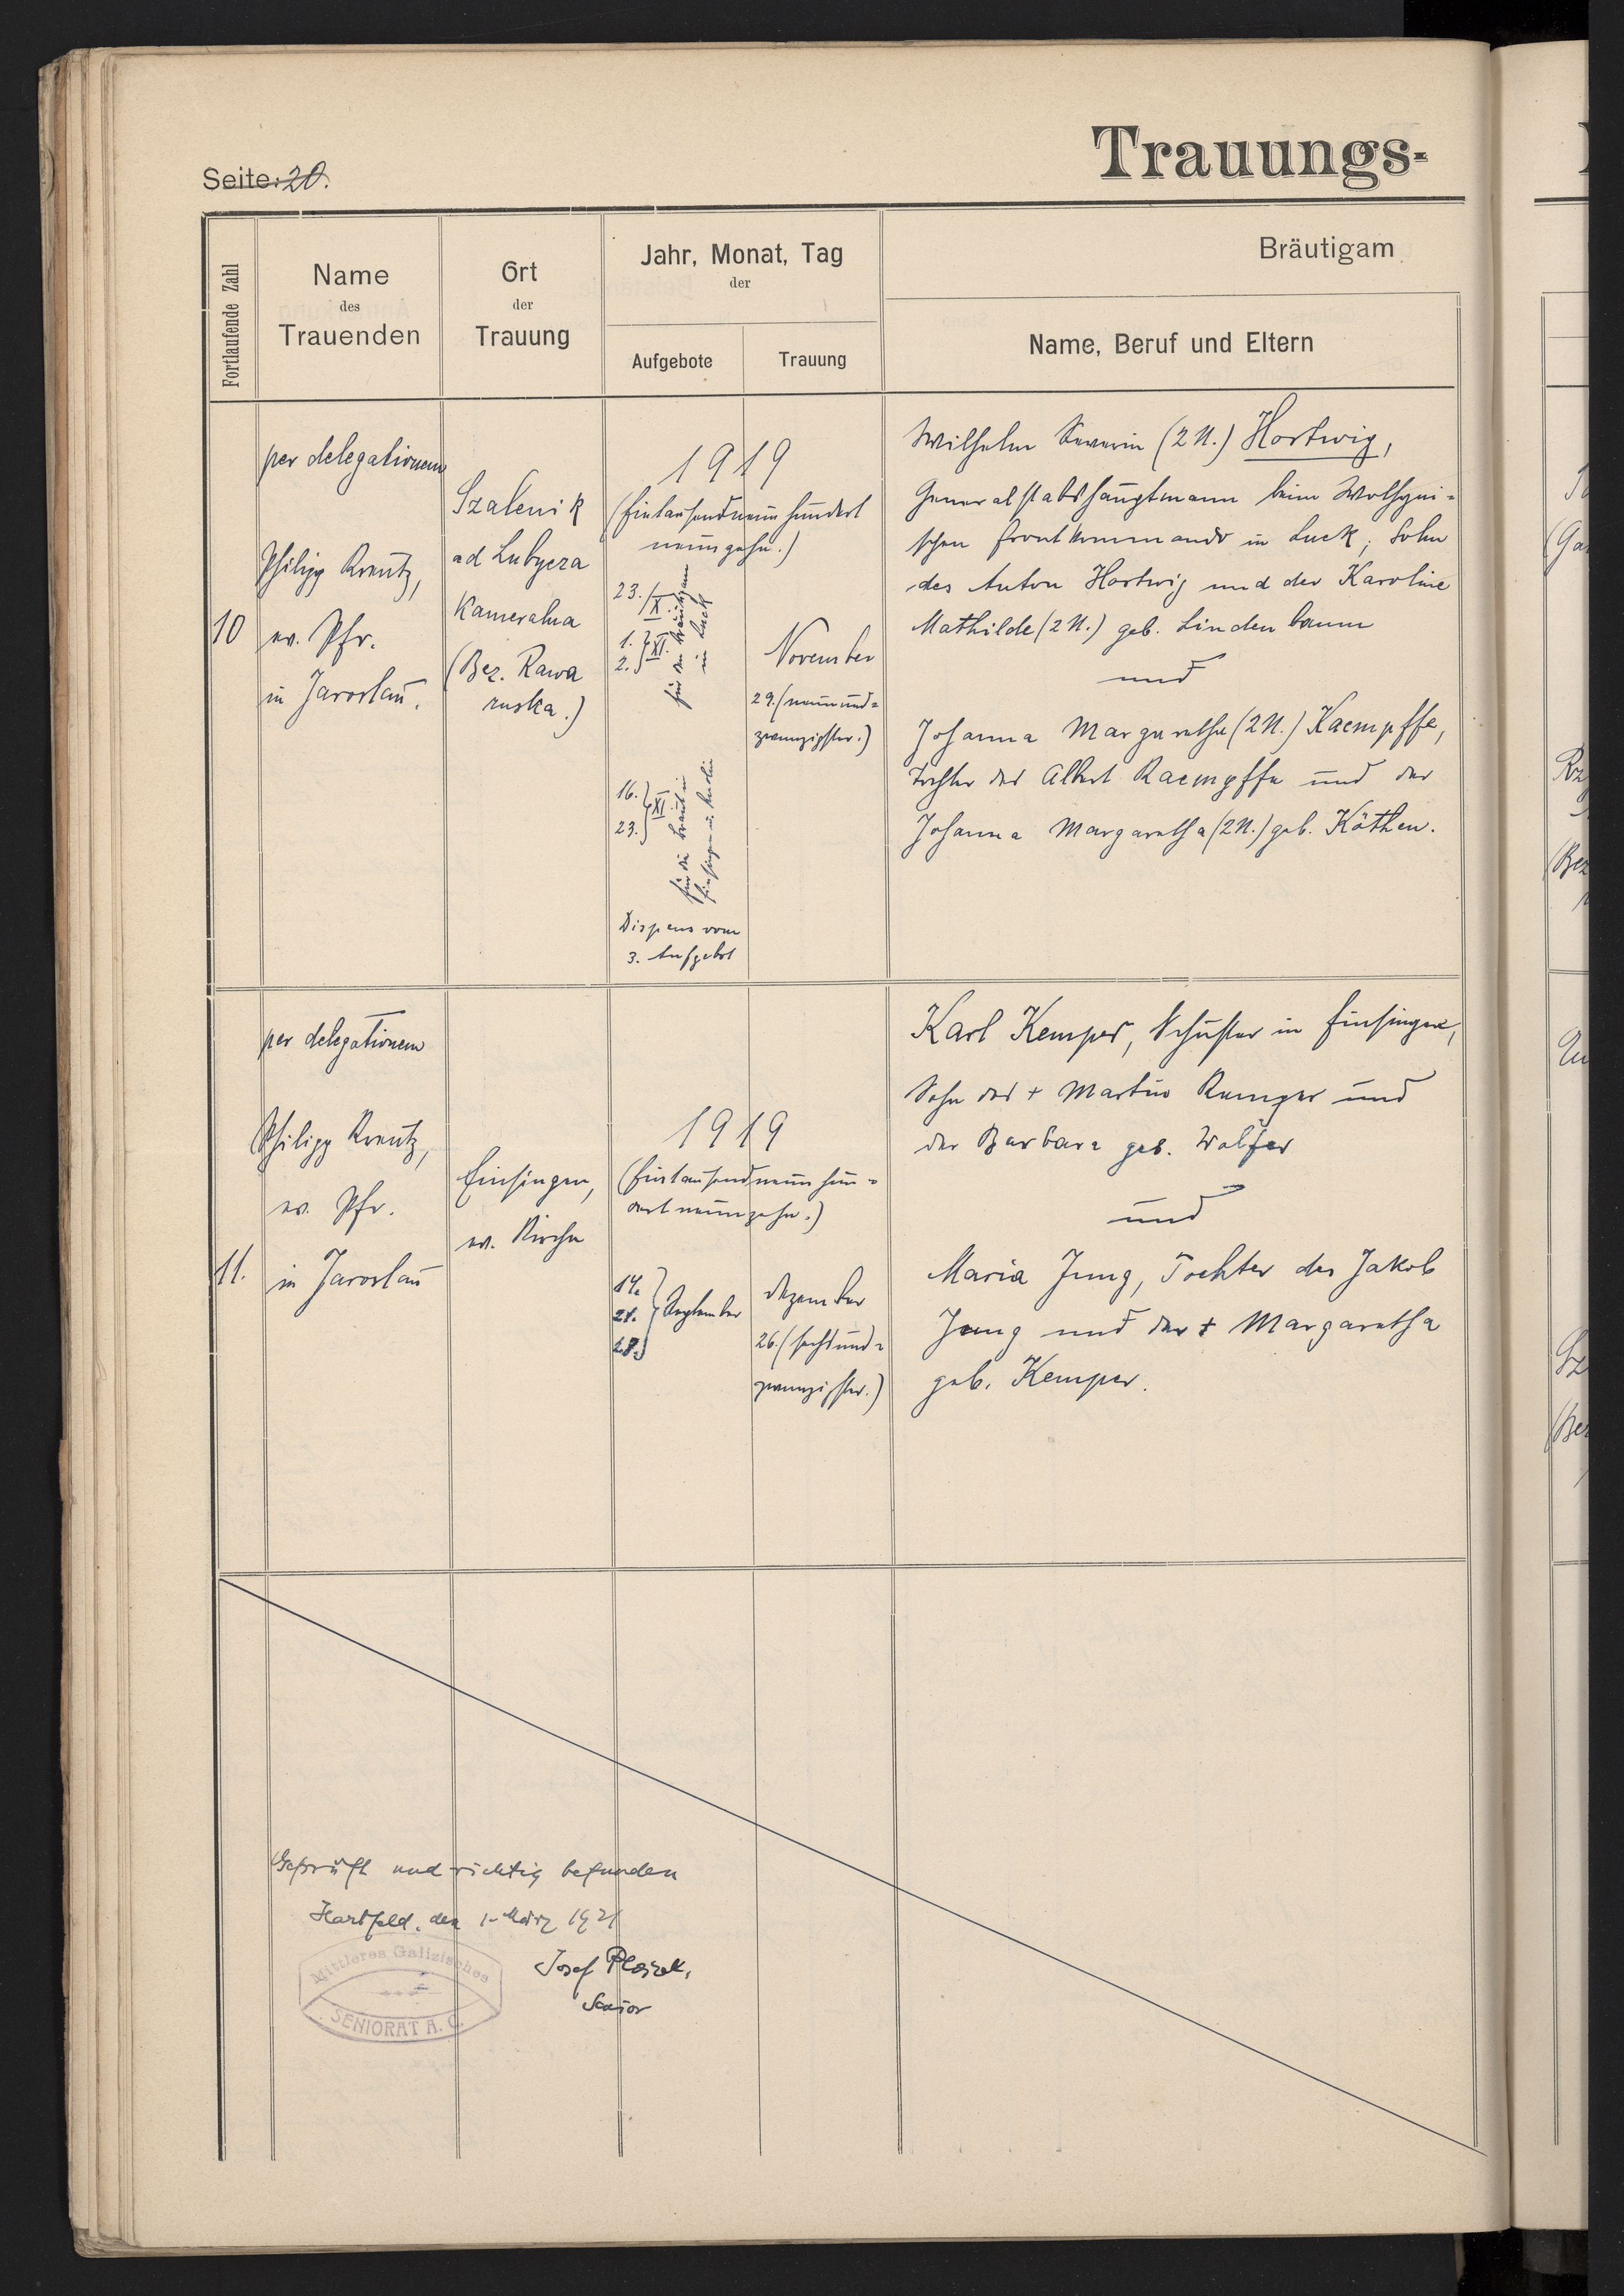 Seite: 20.
Trauungs-
Fortlaufende Zahl
Name
des
Trauenden
Ort
der
Trauung
Jahr, Monat, Tag
der
Aufgebote
Trauung
Bräutigam
Name, Beruf und Eltern
10
per delegationem
Philipp Kreutz,
ev. Pfr.
in Jaroslau.
Szalenik
ad Lubycza
Kameralna
(Bez. Rawa
ruska.)
1919
(Eintausendneunhundert
neunzehn.)
23./X.
1. } XI.
2.
für den Bräutigam
in Luck
16. } XI.
23.
für die Braut in
Einsingen u.
Dispens vom
3. Aufgebot
November
29. (neunund=
zwanzigster.)
Wilhelm Severin (2 N.) Hortwig,
Generalstabshauptmann beim Wolhyni=
schen Frontkommando in Luck, Sohn
des Anton Hortwig und der Karoline
Mathilde (2 N.) geb. Lindenbaum
und
Johanna Margaretha (2 N.) Kaempffe,
Tochter des Albert Kaempffe und der
Johanna Margaretha (2 N.) geb. Köthen.
11.
per delegationem
Philipp Kreutz,
ev. Pfr.
in Jaroslau
Einsingen,
ev. Kirche
1919
(Eintausendneunhun=
dertneunzehn.)
14.
21. } September
28.
Dezember
26. (sechsund=
zwanzigster.)
Karl Kemper, Schuster in Einsingen,
Sohn des + Martin Kemper und
der Barbara geb. Wolfer
und
Maria Jung, Tochter des Jakob
Jung und der + Margaretha
geb. Kemper.
Geprüft und richtig befunden
Hartfeld, den 1. März 1921
Josef
Senior
Mittleres Galizisches
SENIORAT A. C.